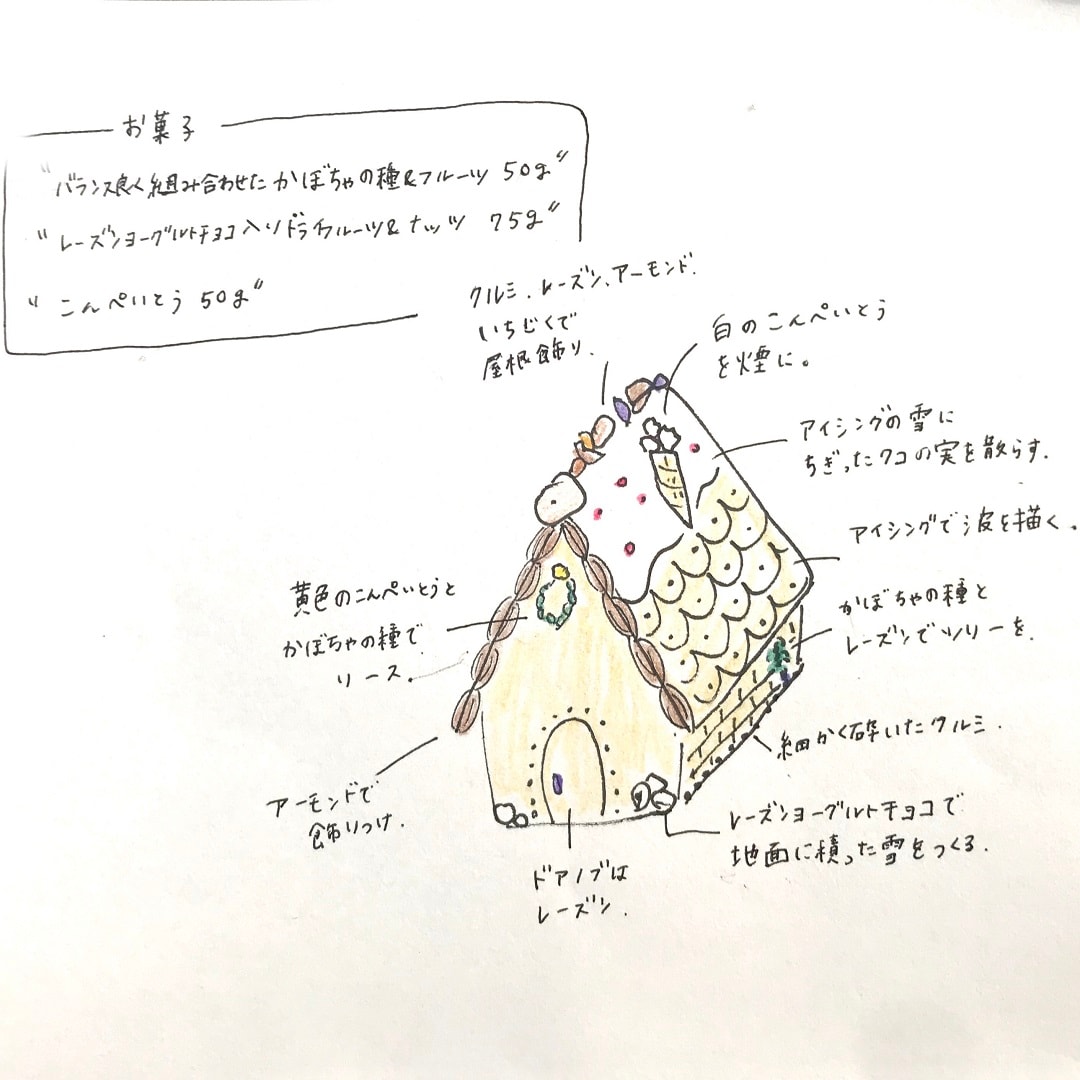 お菓子
"バランス良く組み合わせた かぼちゃの種&フルーツ 50g"
"レーズンヨーグルトチョコ入りドライフルーツ&ナッツ 75g"
"こんぺいとう 50g"
クルミ、レーズン、アーモンド、
いちじくで
屋根飾り.
白のこんぺいとう
を煙に。
アイシングの雪に
ちぎったクコの実を散らす.
アイシングで波を描く。
黄色のこんぺいとうと
かぼちゃの種で
リース。
かぼちゃの種と
レーズンでツリーを.
細かく砕いたクルミ.
アーモンドで
飾りつけ.
レーズンヨーグルトチョコで
地面に積った雪をつくる.
ドアノブは
レーズン.